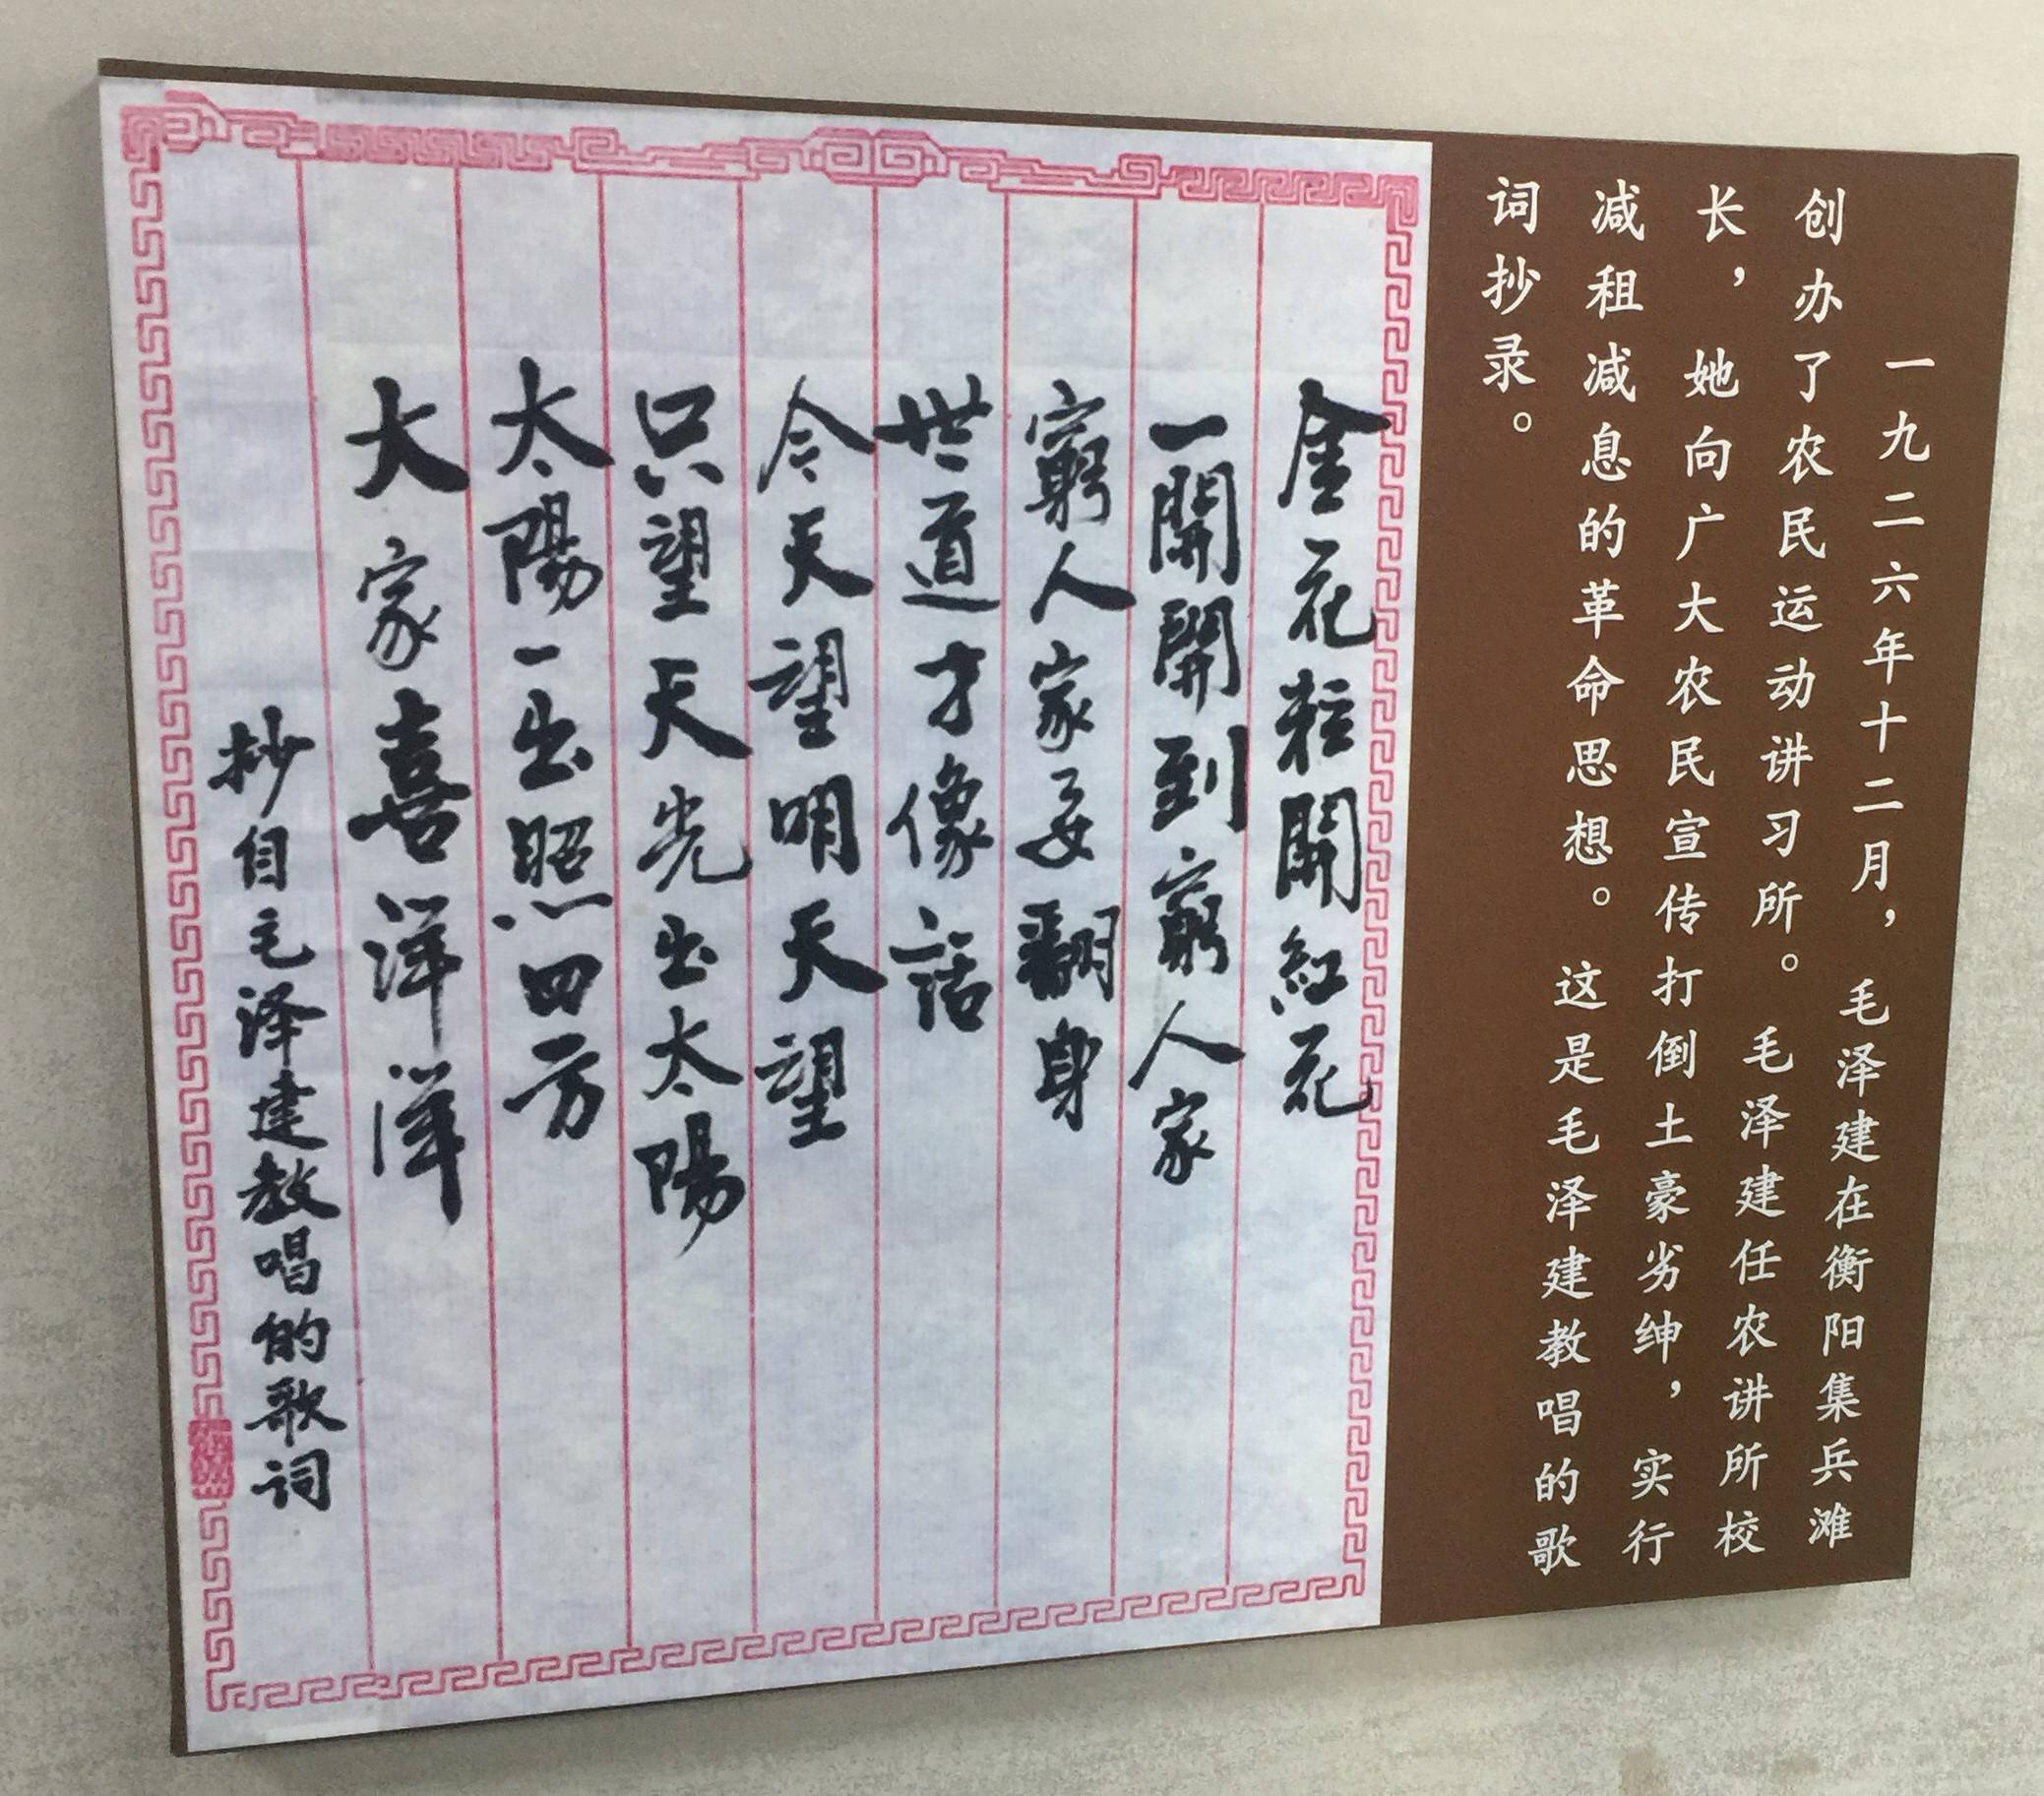 一九二六年十二月，毛泽建在衡阳集兵滩
创办了农民运动讲习所。毛泽建任农讲所校
长，她向广大农民宣传打倒土豪劣绅，实行
减租减息的革命思想。这是毛泽建教唱的歌
词抄录。
金花粒開紅花
一開開到窮人家
窮人家要翻身
世道才像話
今天望明天望
只望天光出太陽
太陽一出照四方
大家喜洋洋
抄自毛泽建教唱的歌词